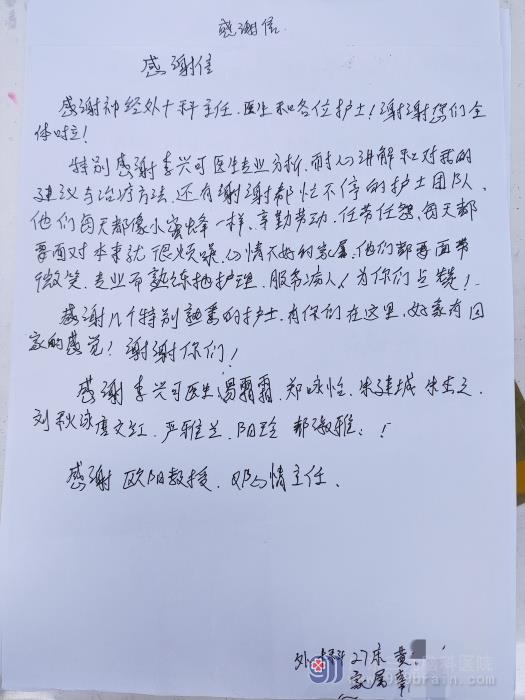 感谢信
感谢信
感谢神经外十科主任、医生和各位护士！谢谢您们全
体对立！
特别感谢李兴可医生专业分析、耐心讲解和对我的
建议与治疗方法、还有谢谢都忙不停的护士团队、
他们每天都像小蜜蜂一样、辛勤劳动、任劳任怨、每天都
要面对本来就很烦躁、心情不好的家属、他们都要面带
微笑、专业而熟练地护理、服务病人、为你们点赞！
感谢几个特别熟悉的护士、有你们在这里、好象有回
家的感觉！谢谢你们！
感谢李兴可医生 汤霜霜、郑咏怡、朱建城 朱
刘秋泳 唐文红、严雅兰、阳玲 郝淑雅！
感谢欧阳教授、邓心情主任、
外 27床 黄
家属
脑科医院
brain.com